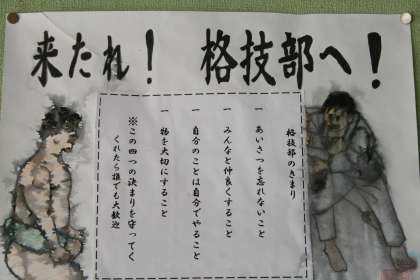 来たれ！ 格技部へ！
格技部のきまり
一 あいさつを忘れないこと
一 みんなと仲良くすること
一 自分のことは自分でやること
一 物を大切にすること
※この四つの決まりを守ってく
くれたら誰でも大歓迎